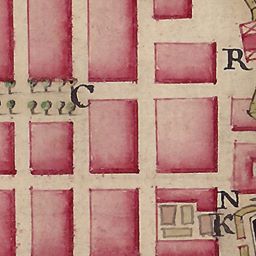 R
C
N
K